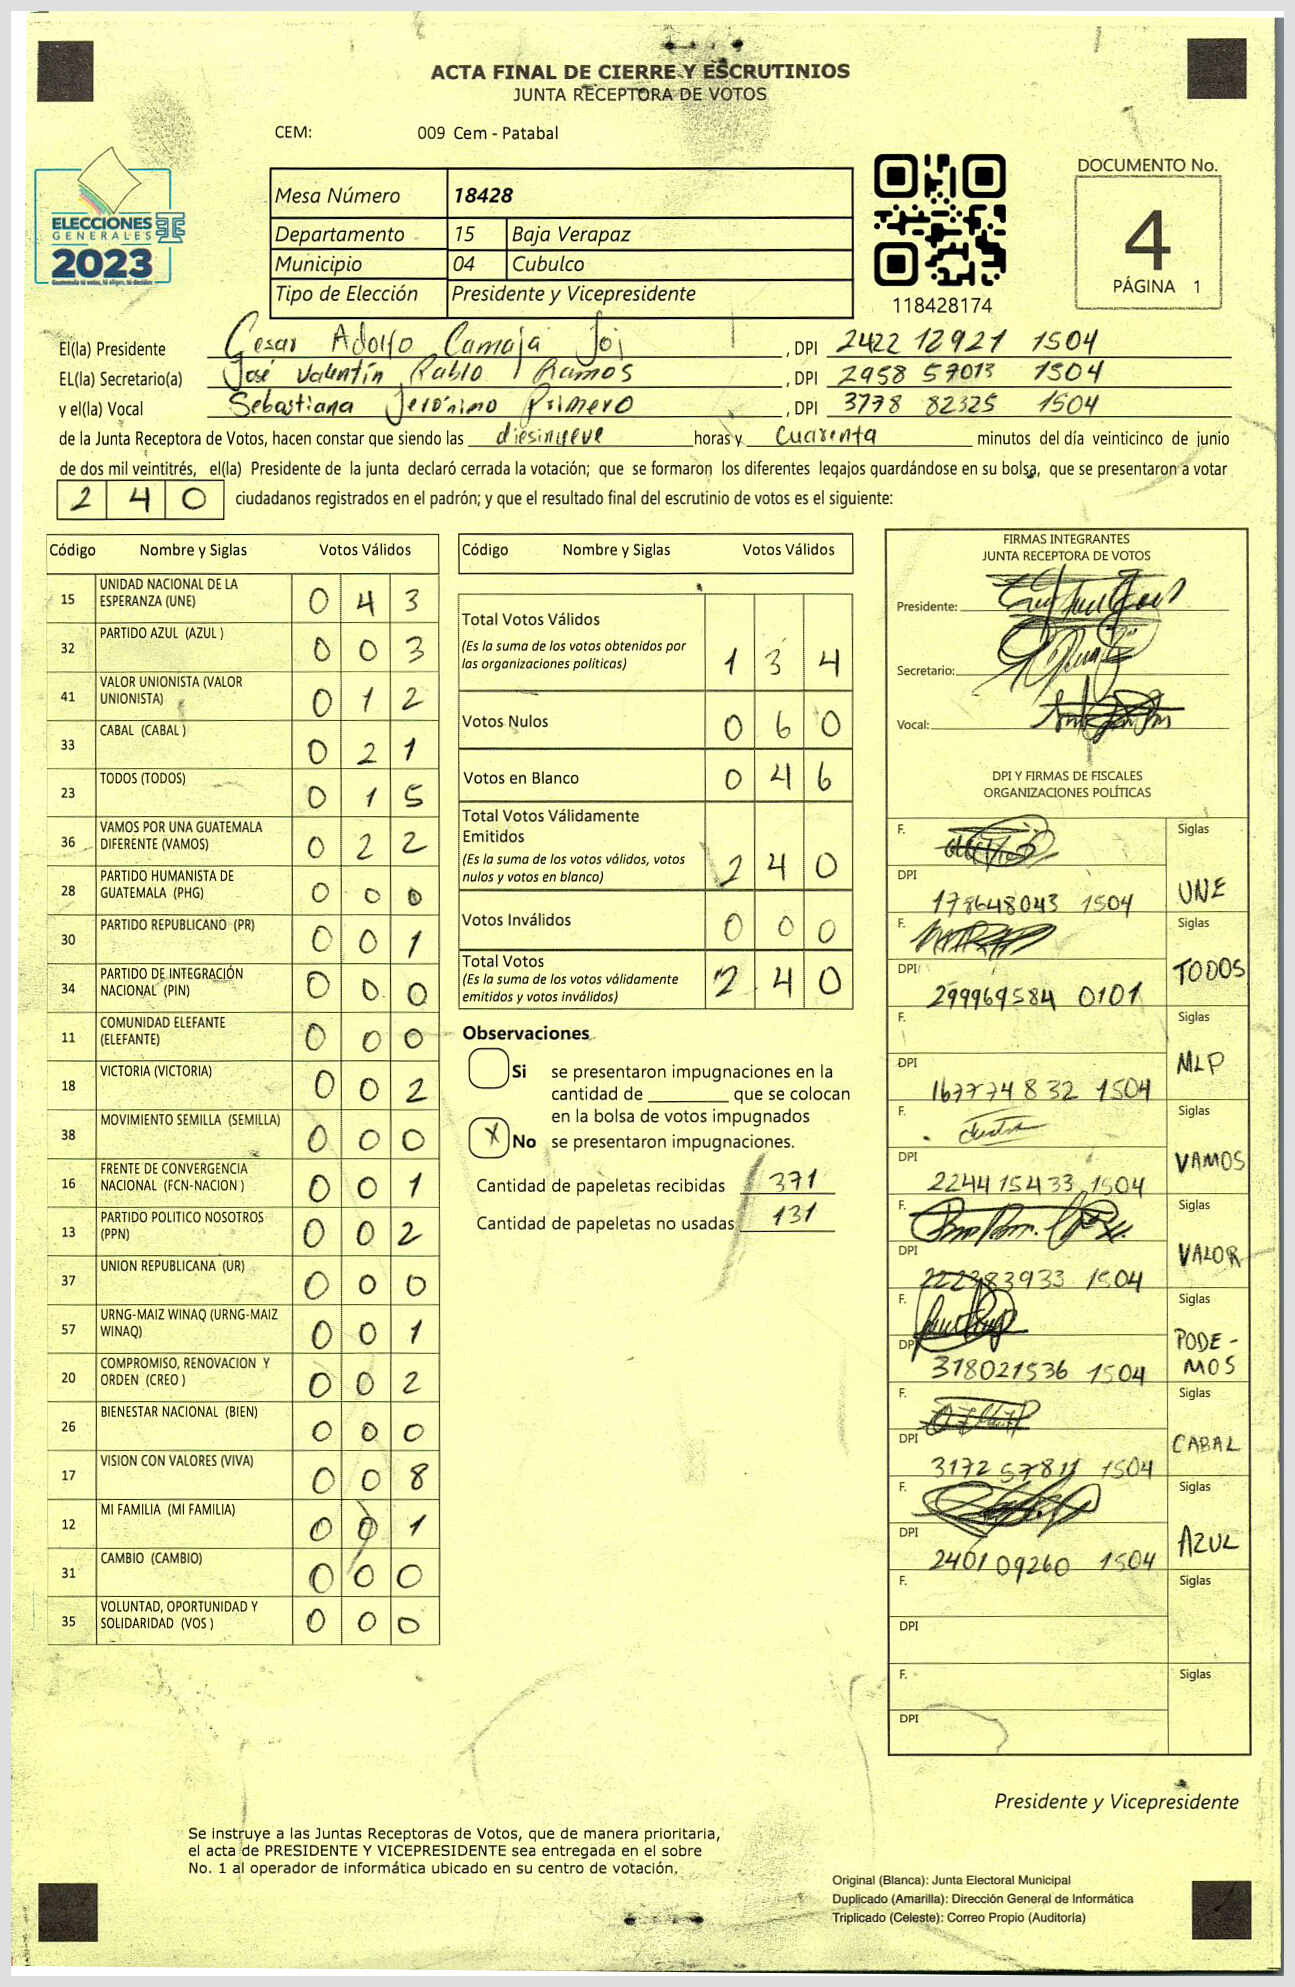 ACTA FINAL DE CIERRE Y ESCRUTINIOS
JUNTA RECEPTORA DE VOTOS
CEM: 009 Cem - Patabal
ELECCIONES
GENERALES
2023
Guatemala tú votas, tú eliges, tú decides
Mesa Número 18428
Departamento 15 Baja Verapaz
Municipio 04 Cubulco
Tipo de Elección Presidente y Vicepresidente
118428174
DOCUMENTO No.
4
PÁGINA 1
El(la) Presidente Cesar Adolfo Camaja Joj , DPI 2422 12921 1504
EL(la) Secretario(a) José Valentín Pablo Ramos , DPI 2958 57013 1504
y el(la) Vocal Sebastiana Jerónimo Primero , DPI 3778 82325 1504
de la Junta Receptora de Votos, hacen constar que siendo las diesinueve horas y cuarenta minutos del día veinticinco de junio
de dos mil veintitrés, el(la) Presidente de la junta declaró cerrada la votación; que se formaron los diferentes legajos guardándose en su bolsa, que se presentaron a votar
2 4 0 ciudadanos registrados en el padrón; y que el resultado final del escrutinio de votos es el siguiente:
Código Nombre y Siglas Votos Válidos
15 UNIDAD NACIONAL DE LA ESPERANZA (UNE) 0 4 3
32 PARTIDO AZUL (AZUL ) 0 0 3
41 VALOR UNIONISTA (VALOR UNIONISTA) 0 1 2
33 CABAL (CABAL ) 0 2 1
23 TODOS (TODOS) 0 1 5
36 VAMOS POR UNA GUATEMALA DIFERENTE (VAMOS) 0 2 2
28 PARTIDO HUMANISTA DE GUATEMALA (PHG) 0 0 0
30 PARTIDO REPUBLICANO (PR) 0 0 1
34 PARTIDO DE INTEGRACIÓN NACIONAL (PIN) 0 0 0
11 COMUNIDAD ELEFANTE (ELEFANTE) 0 0 0
18 VICTORIA (VICTORIA) 0 0 2
38 MOVIMIENTO SEMILLA (SEMILLA) 0 0 0
16 FRENTE DE CONVERGENCIA NACIONAL (FCN-NACION ) 0 0 1
13 PARTIDO POLITICO NOSOTROS (PPN) 0 0 2
37 UNION REPUBLICANA (UR) 0 0 0
57 URNG-MAIZ WINAQ (URNG-MAIZ WINAQ) 0 0 1
20 COMPROMISO, RENOVACION Y ORDEN (CREO ) 0 0 2
26 BIENESTAR NACIONAL (BIEN) 0 0 0
17 VISION CON VALORES (VIVA) 0 0 8
12 MI FAMILIA (MI FAMILIA) 0 0 1
31 CAMBIO (CAMBIO) 0 0 0
35 VOLUNTAD, OPORTUNIDAD Y SOLIDARIDAD (VOS ) 0 0 0
Código Nombre y Siglas Votos Válidos
Total Votos Válidos
(Es la suma de los votos obtenidos por las organizaciones politicas) 1 3 4
Votos Nulos 0 6 0
Votos en Blanco 0 4 6
Total Votos Válidamente Emitidos
(Es la suma de los votos válidos, votos nulos y votos en blanco) 2 4 0
Votos Inválidos 0 0 0
Total Votos
(Es la suma de los votos válidamente emitidos y votos inválidos) 2 4 0
Observaciones
Si se presentaron impugnaciones en la
cantidad de que se colocan
en la bolsa de votos impugnados
X No se presentaron impugnaciones.
Cantidad de papeletas recibidas 371
Cantidad de papeletas no usadas 131
FIRMAS INTEGRANTES
JUNTA RECEPTORA DE VOTOS
Presidente:
Secretario:
Vocal:
DPI Y FIRMAS DE FISCALES
ORGANIZACIONES POLÍTICAS
F. Siglas
DPI 178648043 1504 UNE
F. Siglas
DPI 299969584 0101 TODOS
F. Siglas
DPI 167774832 1504 MLP
F. Siglas
DPI 2244 15433 1504 VAMOS
F. Siglas
DPI 222383933 1504 VALOR
F. Siglas
DPI 318021536 1504 PODE-
MOS
F. Siglas
DPI 3172 57811 1504 CABAL
F. Siglas
DPI 240109260 1504 AZUL
F. Siglas
DPI
F. Siglas
DPI
Presidente y Vicepresidente
Se instruye a las Juntas Receptoras de Votos, que de manera prioritaria,
el acta de PRESIDENTE Y VICEPRESIDENTE sea entregada en el sobre
No. 1 al operador de informática ubicado en su centro de votación.
Original (Blanca): Junta Electoral Municipal
Duplicado (Amarilla): Dirección General de Informática
Triplicado (Celeste): Correo Propio (Auditoría)